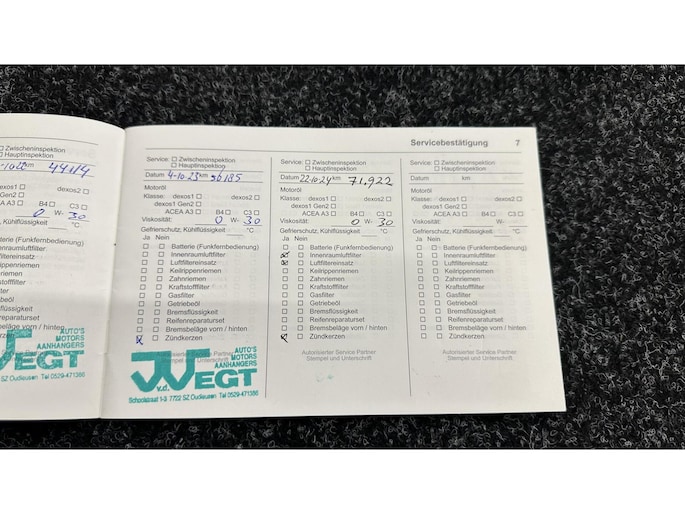 Servicebestätigung 7
Zwischeninspektion
Hauptinspektion
km 4414
dexos1
dexos2
B4 C3
0 W- 30
Kühlflüssigkeit °C
(Funkfernbedienung)
AUTO'S
MOTORS
AANHANGERS
VEGT
SZ Oudleusen Tel 0529-471386
Service: Zwischeninspektion
Hauptinspektion
Datum 4-10-23 km 56185
Motoröl
Klasse: dexos1 dexos2
dexos1 Gen2
ACEA A3 B4 C3
Viskosität: 0 W- 30
Gefrierschutz, Kühlflüssigkeit °C
Ja Nein
Batterie (Funkfernbedienung)
Innenraumluftfilter
Luftfiltereinsatz
Keilrippenriemen
Zahnriemen
Kraftstofffilter
Gasfilter
Getriebeöl
Bremsflüssigkeit
Reifenreparaturset
Bremsbeläge vorn / hinten
Zündkerzen
Autorisierter Service Partner
Stempel und Unterschrift
AUTO'S
MOTORS
AANHANGERS
v.d. VEGT
Schoolstraat 1-3 7722 SZ Oudleusen Tel 0529-471386
Service: Zwischeninspektion
Hauptinspektion
Datum 22-10-24 km 71,922
Motoröl
Klasse: dexos1 dexos2
dexos1 Gen2
ACEA A3 B4 C3
Viskosität: 0 W- 30
Gefrierschutz, Kühlflüssigkeit °C
Ja Nein
Batterie (Funkfernbedienung)
Innenraumluftfilter
Luftfiltereinsatz
Keilrippenriemen
Zahnriemen
Kraftstofffilter
Gasfilter
Getriebeöl
Bremsflüssigkeit
Reifenreparaturset
Bremsbeläge vorn / hinten
Zündkerzen
Autorisierter Service Partner
Stempel und Unterschrift
Service: Zwischeninspektion
Hauptinspektion
Datum km
Motoröl
Klasse: dexos1 dexos2
dexos1 Gen2
ACEA A3 B4 C3
Viskosität: W-
Gefrierschutz, Kühlflüssigkeit °C
Ja Nein
Batterie (Funkfernbedienung)
Innenraumluftfilter
Luftfiltereinsatz
Keilrippenriemen
Zahnriemen
Kraftstofffilter
Gasfilter
Getriebeöl
Bremsflüssigkeit
Reifenreparaturset
Bremsbeläge vorn / hinten
Zündkerzen
Autorisierter Service Partner
Stempel und Unterschrift